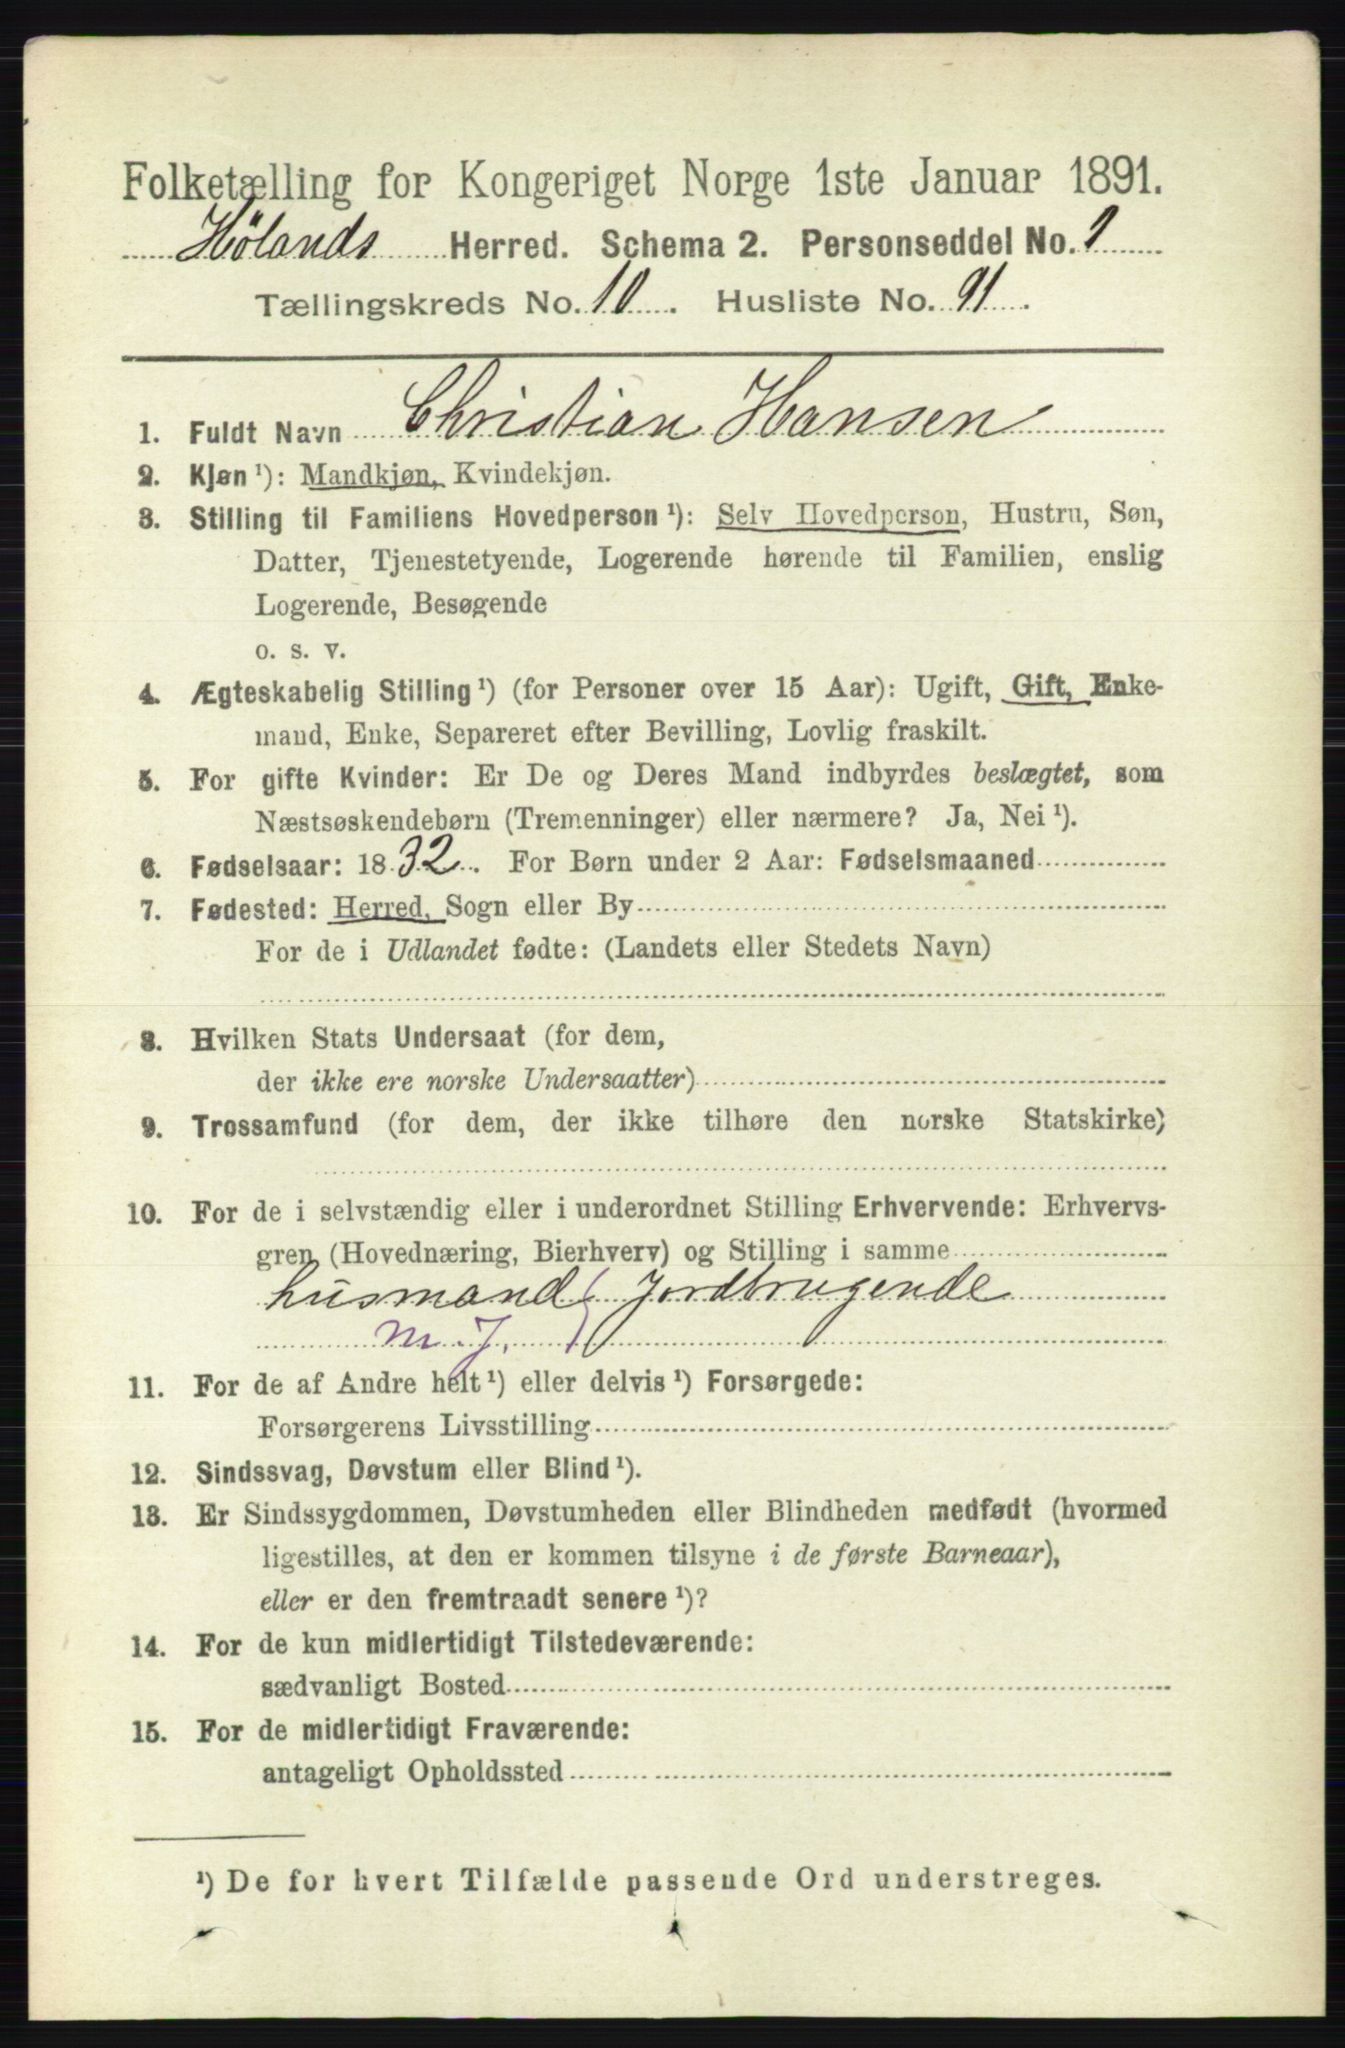 Folketælling for Kongeriget Norge 1ste Januar 1891.
Hølands Herred. Schema 2. Personseddel No. 1
Tællingskreds No. 10. Husliste No. 91.
1. Fuldt Navn Christian Hansen
2. Kjøn ¹): Mandkjøn, Kvindekjøn.
3. Stilling til Familiens Hovedperson ¹): Selv Hovedperson, Hustru, Søn,
Datter, Tjenestetyende, Logerende hørende til Familien, enslig
Logerende, Besøgende
o. s. v.
4. Ægteskabelig Stilling ¹) (for Personer over 15 Aar): Ugift, Gift, Enke-
mand, Enke, Separeret efter Bevilling, Lovlig fraskilt.
5. For gifte Kvinder: Er De og Deres Mand indbyrdes beslægtet, som
Næstsøskendebørn (Tremenninger) eller nærmere? Ja, Nei ¹).
6. Fødselsaar: 1832. For Børn under 2 Aar: Fødselsmaaned
7. Fødested: Herred, Sogn eller By
For de i Udlandet fødte: (Landets eller Stedets Navn)
8. Hvilken Stats Undersaat (for dem,
der ikke ere norske Undersaatter)
9. Trossamfund (for dem, der ikke tilhøre den norske Statskirke)
10. For de i selvstændig eller i underordnet Stilling Erhvervende: Erhvervs-
gren (Hovednæring, Bierhverv) og Stilling i samme
husmand Jordbrugende
m. J.
11. For de af Andre helt ¹) eller delvis ¹) Forsørgede:
Forsørgerens Livsstilling
12. Sindssvag, Døvstum eller Blind ¹).
13. Er Sindssygdommen, Døvstumheden eller Blindheden medfødt (hvormed
ligestilles, at den er kommen tilsyne i de første Barneaar),
eller er den fremtraadt senere ¹)?
14. For de kun midlertidigt Tilstedeværende:
sædvanligt Bosted
15. For de midlertidigt Fraværende:
antageligt Opholdssted
¹) De for hvert Tilfælde passende Ord understreges.